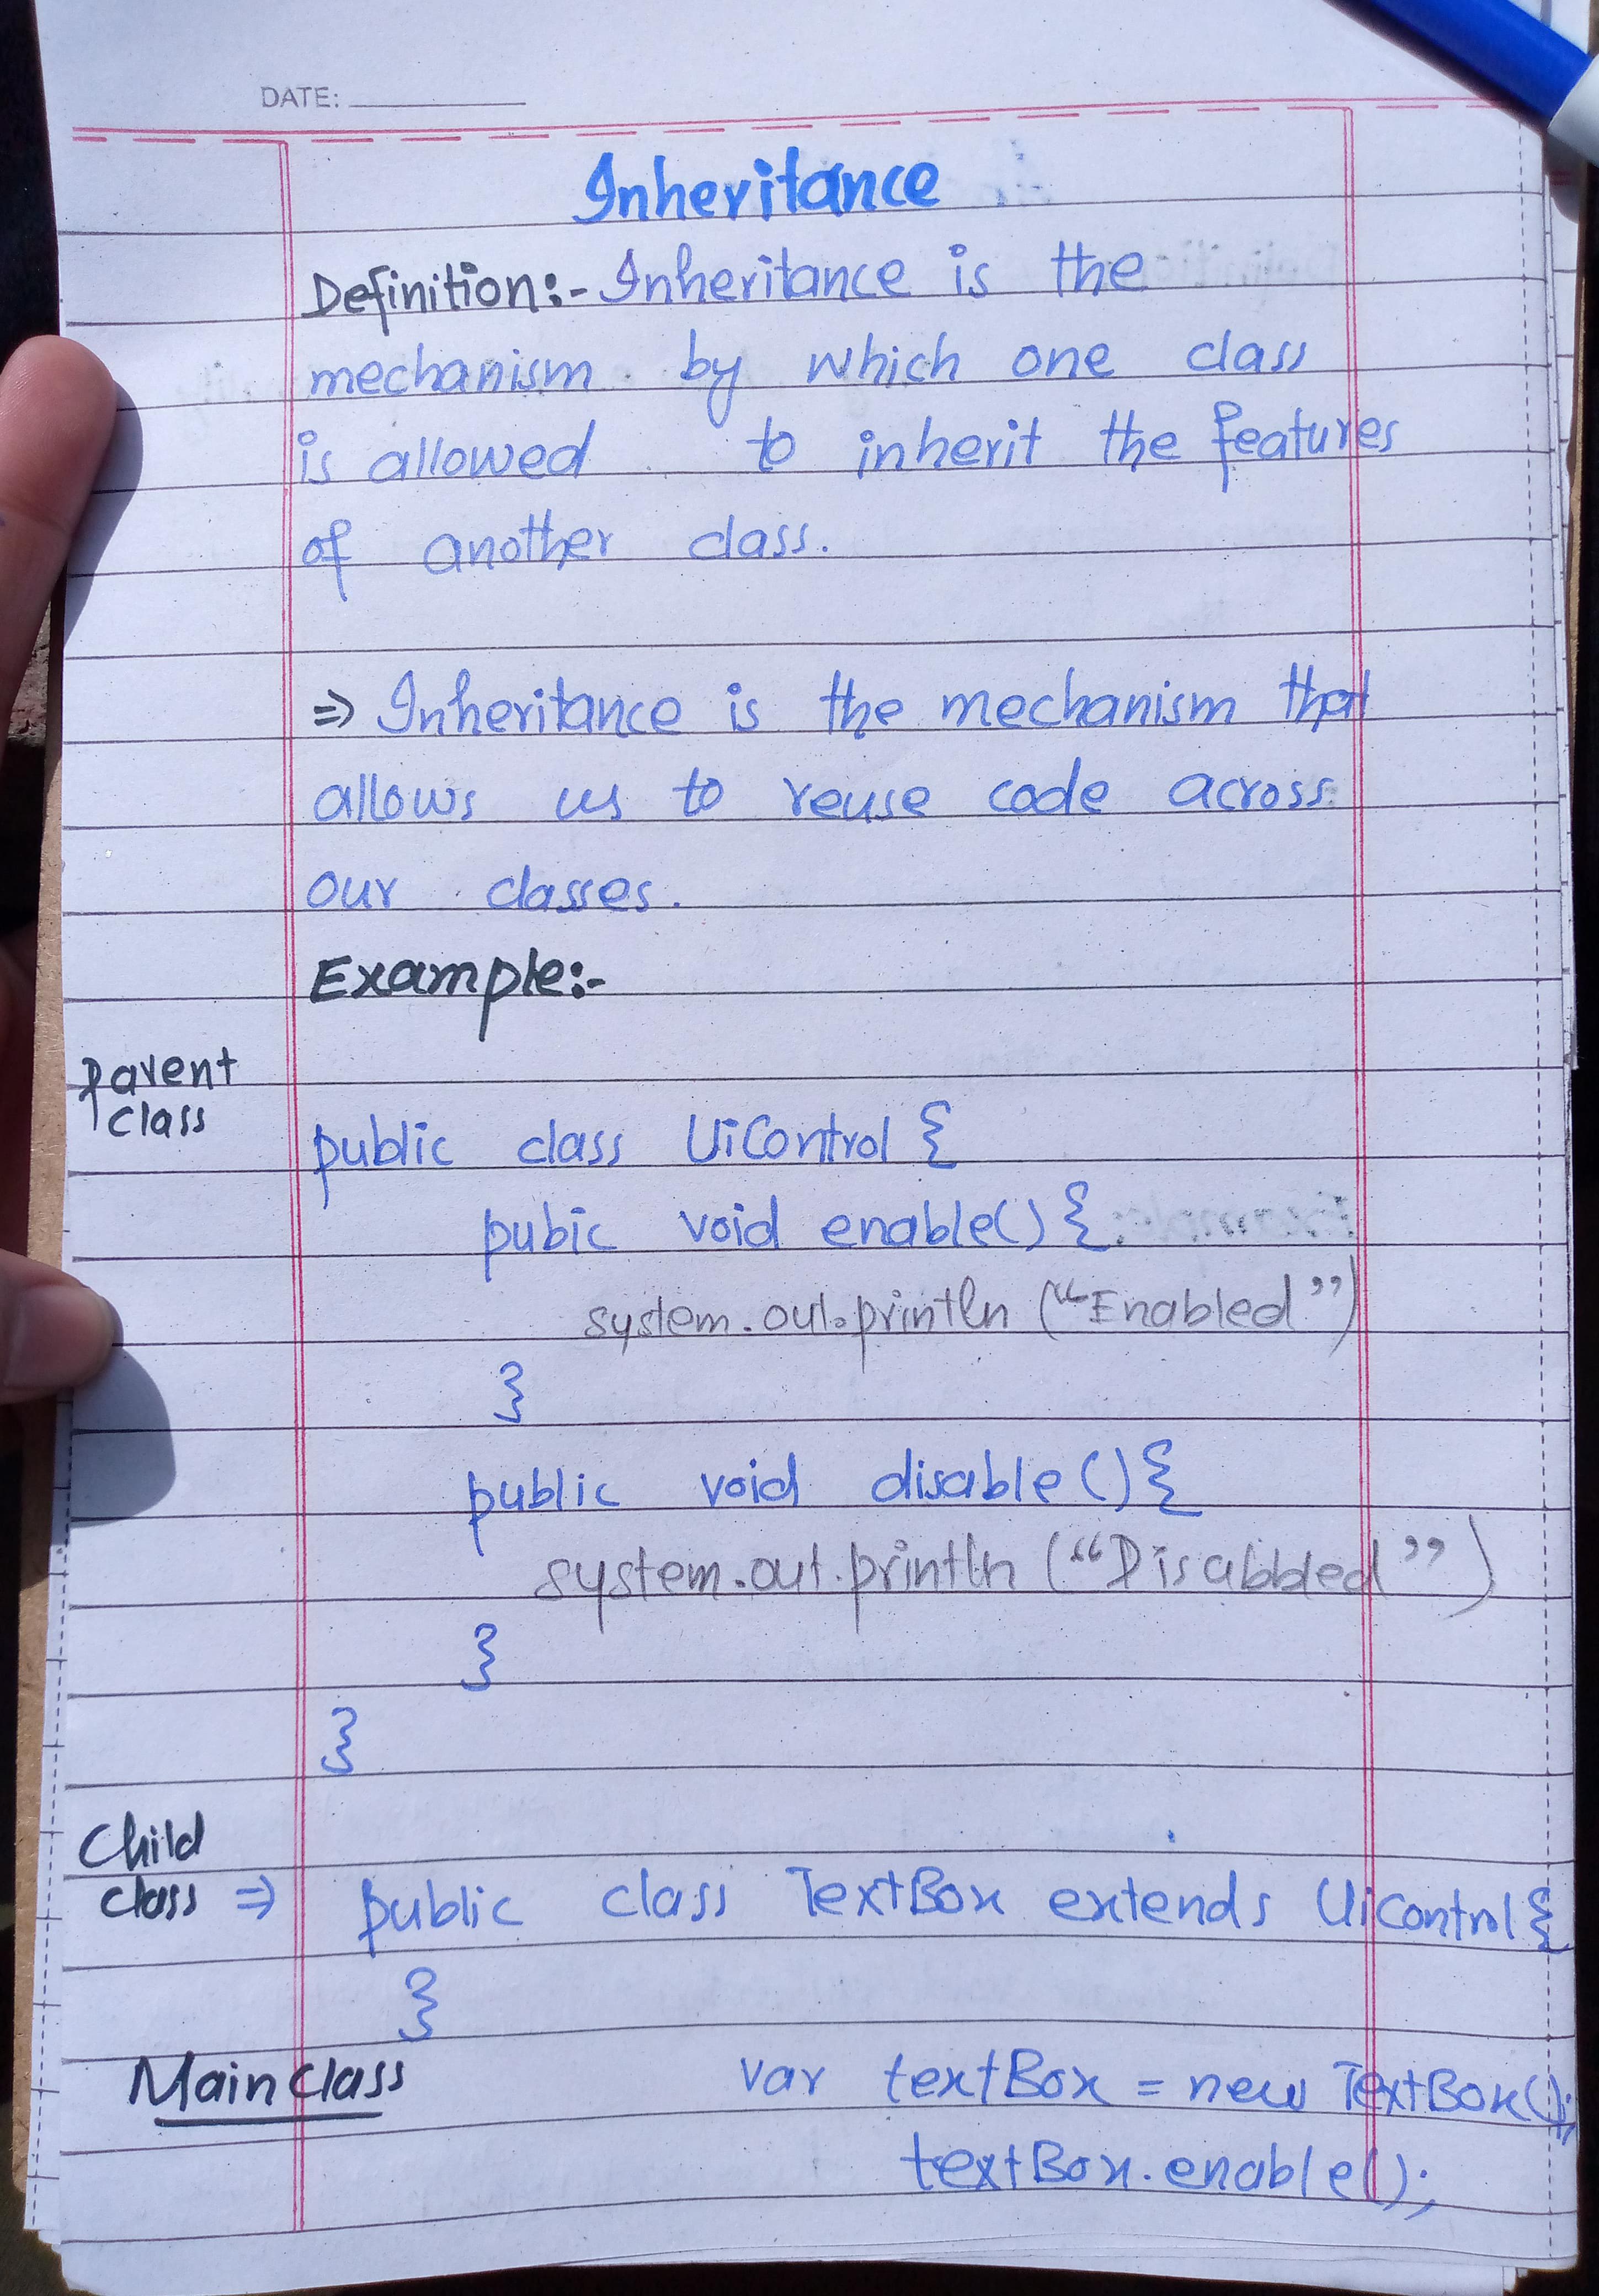 DATE:
Inheritance
Definition:- Inheritance is the
mechanism by which one class
is allowed to inherit the features
of another class.
⇒ Inheritance is the mechanism that
allows us to reuse code across
our classes.
Example:-
parent
class
public class UiControl {
pubic void enable() {
system.out.println ("Enabled")
}
public void disable() {
system.out.println ("Disabbled")
}
}
Child
class ⇒ public class TextBox extends UiControl {
}
Main class var textBox = new TextBox();
textBox.enable();